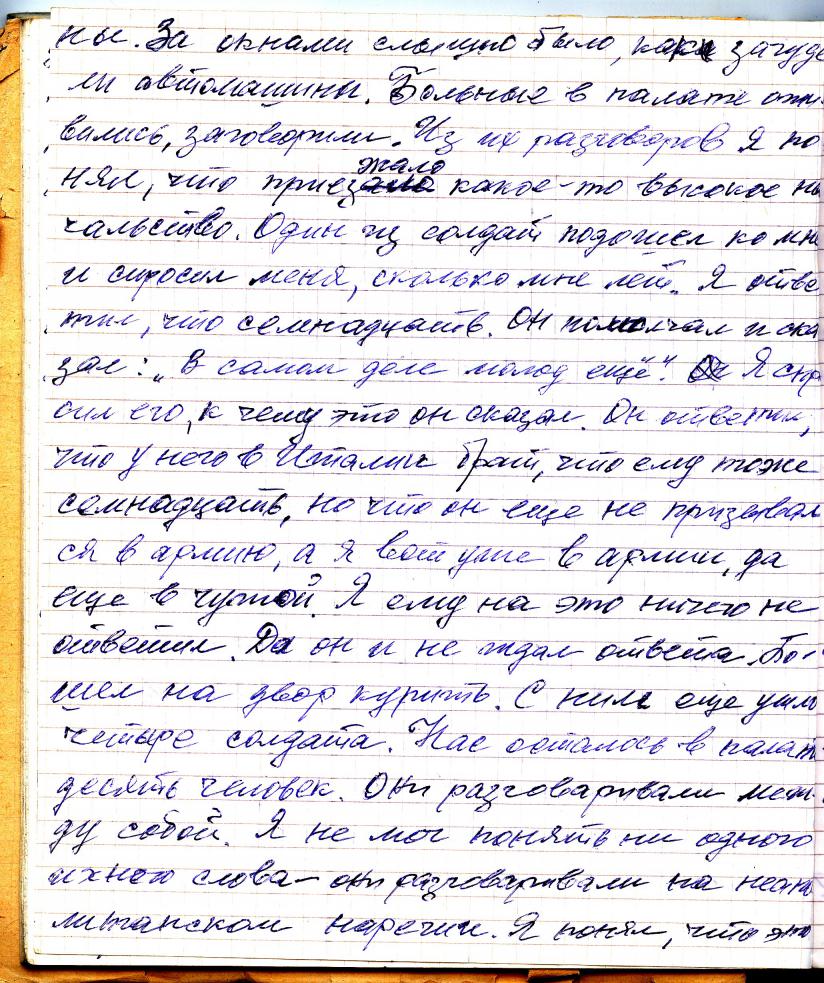 ны. За окнами слышно было, как загуде
ли автомашины. Больные в палате ожи
вились, заговорили. Из их разговоров я по
нял, что приезжало какое-то высокое на
чальство. Один из солдат подошел ко мне
и спросил меня, сколько мне лет. Я отве
тил, что семнадцать. Он помолчал и ска
зал: „В самом деле молод ещё". Я спро
сил его, к чему это он сказал. Он ответил,
что у него в Италии брат, что ему тоже
семнадцать, но что он еще не призывал
ся в армию, а я вот уже в армии, да
еще в чужой. Я ему на это ничего не
ответил. Да он и не ждал ответа. По
шел на двор курить. С ним еще ушли
четыре солдата. Нас осталось в палате
десять человек. Они разговаривали меж
ду собой. Я не мог понять ни одного
ихнего слова – они разговаривали на неапо
литанском наречии. Я понял, что это